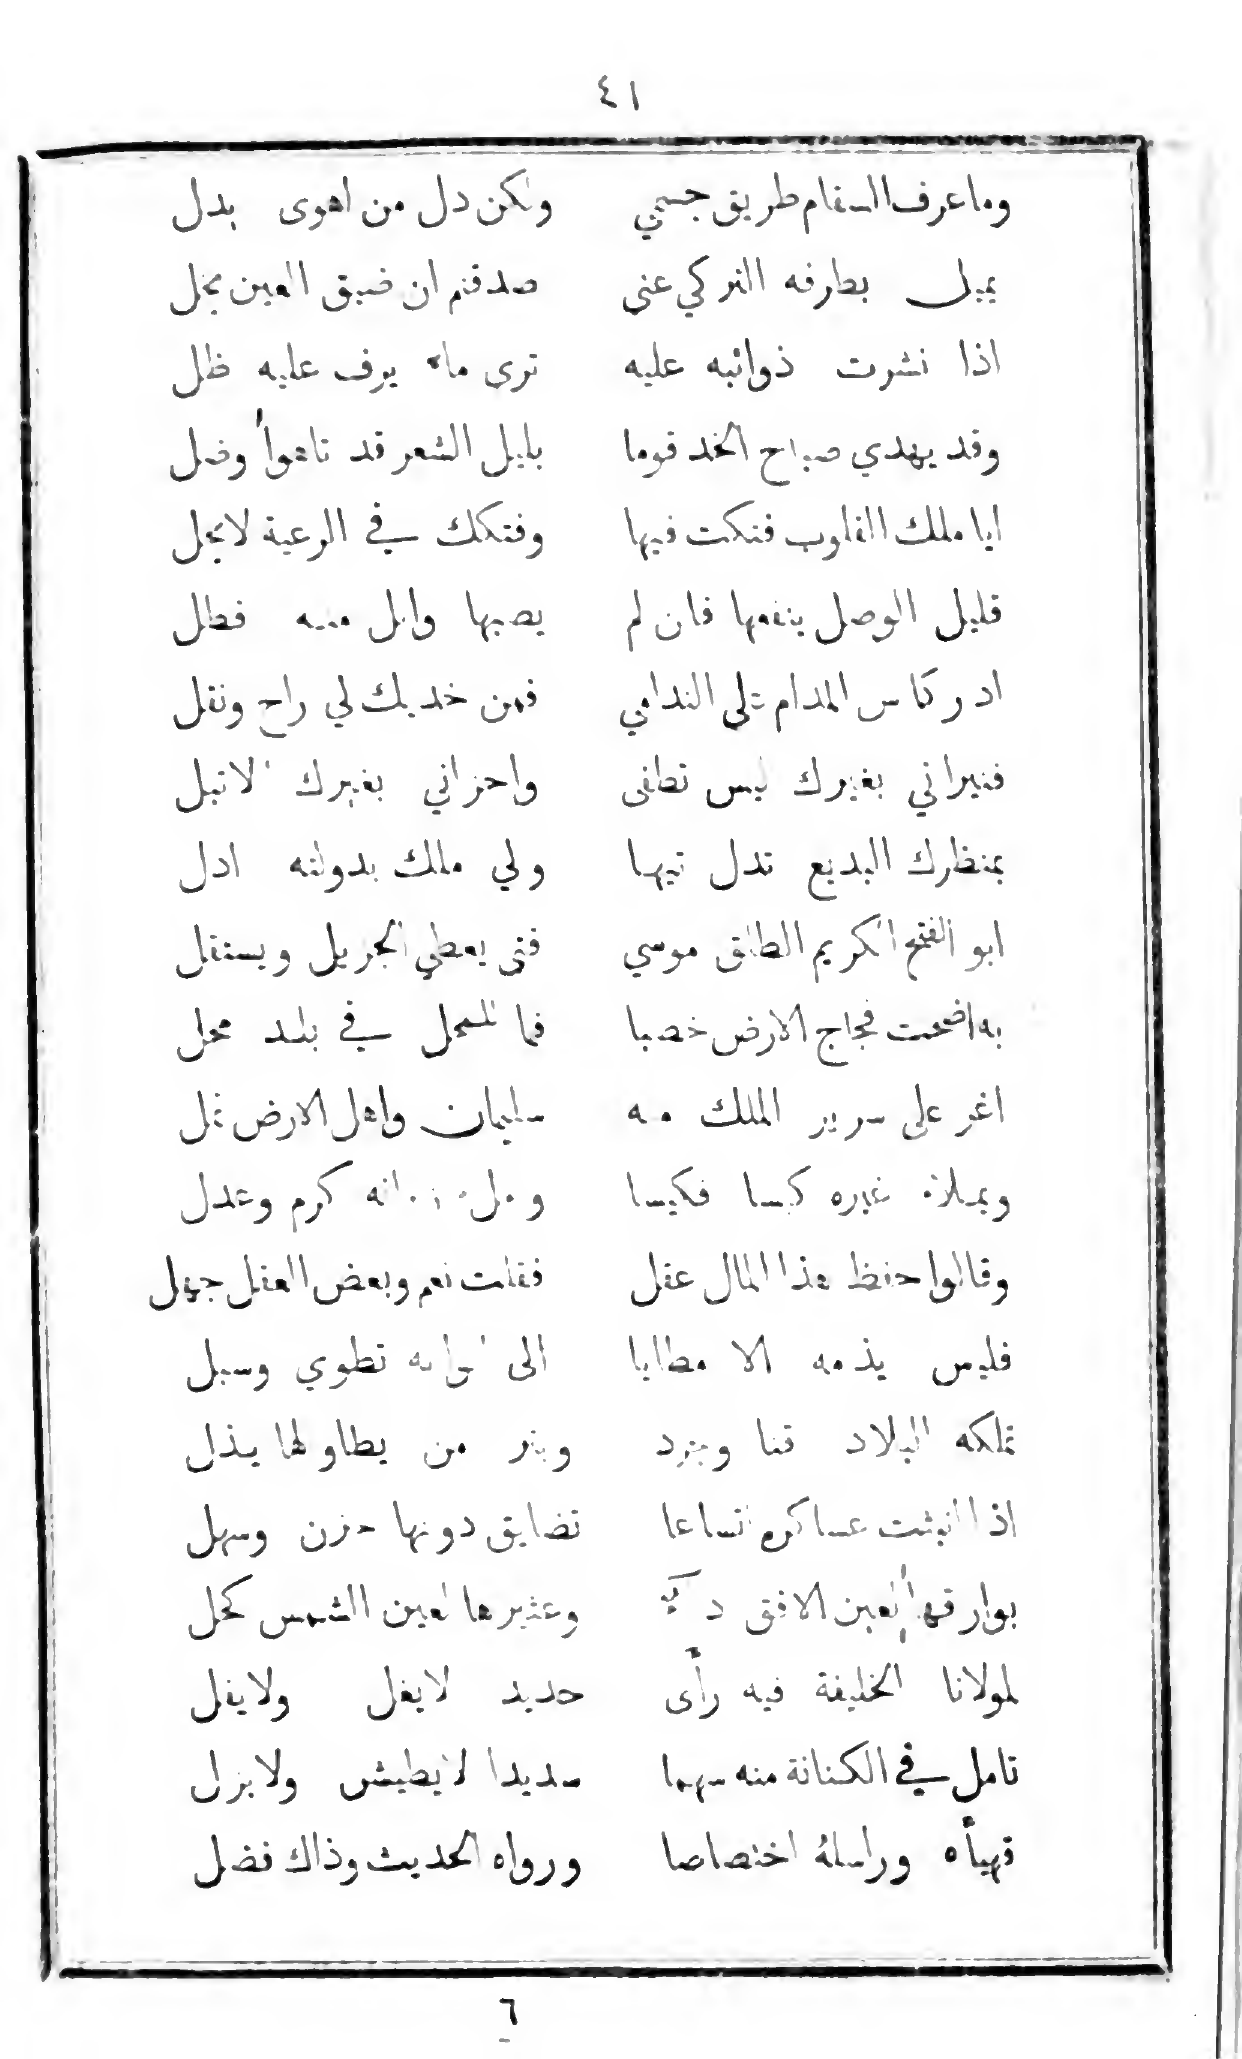 ٤١
وما عرف السقام طريق جسمي ولكن دل من اهوى يدل
يميل بطرفه التركي عني صدقتم ان ضيق العين بخل
اذا نشرت ذوائبه عليه ترى ماء يرف عليه ظل
وقد يهدي صباح الخد قوما بليل الشعر قد تاهوا وضل
ايا ملك القلوب فتكت فيها وفتكك في الرعية لا يحل
قليل الوصل ينفعها فان لم يصبها وابل منه فطل
ادر كاس المدام على الندامى فمن خديك لي راح ونقل
فنيراني بغيرك ليس تطفى واحزاني بغيرك لا تبل
بمنظرك البديع تدل تيها ولي ملك بدولته ادل
ابو الفتح الكريم الطلق موسى فتى يعطي الجزيل ويستقل
به اضحت فجاج الارض خصبا فما للمحل في بلد محل
اغر على سرير الملك منه سليمان واهل الارض نمل
ويملاء غيره كيسا فكيسا كرم وعدل
وقالوا حفظ هذا المال عقل فقلت نعم وبعض العقل جهل
فليس يذمه الا مطايا الى تطوي وسبل
تملكه البلاد قنا وجرد من يطاولها يذل
اذا انبثت عساكره اتساعا تضايق دونها حزن وسهل
بوارقها لعين الافق وعثيرها لعين الشمس كحل
لمولانا الخليفة فيه رأى حديد لا يفل ولا يفل
تامل في الكنانة منه سهما سديدا لا يطيش ولا يزل
فهيأه وراسله اختصاصا ورواه الحديث وذاك فضل
٦